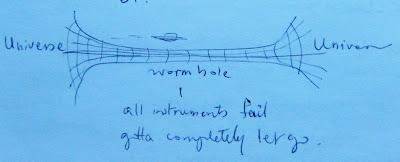 Universe
Univer
worm hole
all instruments fail
gotta completely let go.